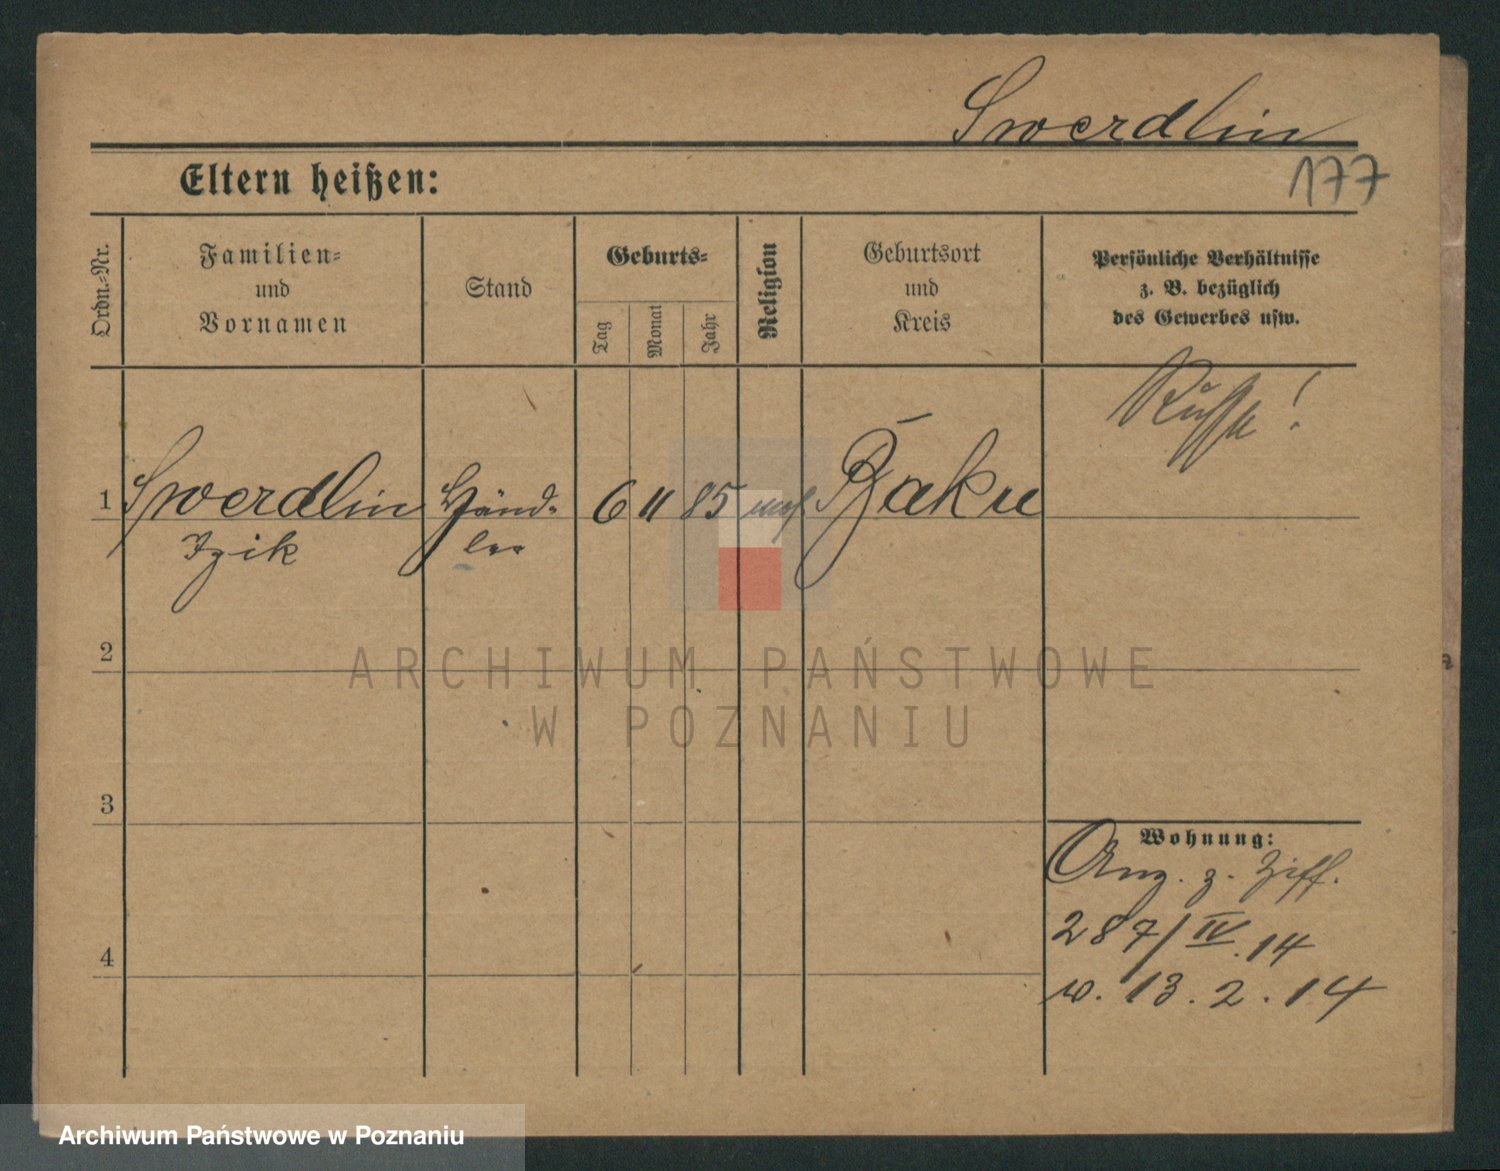 Swerdlin
177
Eltern heißen:
Ordn.-Nr.
Familien-
und
Vornamen
Stand
Geburts-
Tag
Monat
Jahr
Religion
Geburtsort
und
Kreis
Persönliche Verhältnisse
z. B. bezüglich
des Gewerbes usw.
Russe!
1 Swerdlin Händ- 6 11 85 mos Baku
Izik ler
2
ARCHIWUM PAŃSTWOWE
W POZNANIU
3
Wohnung:
Anz. z. Ziff.
287/IV.14
v. 13.2.14
4
Archiwum Państwowe w Poznaniu